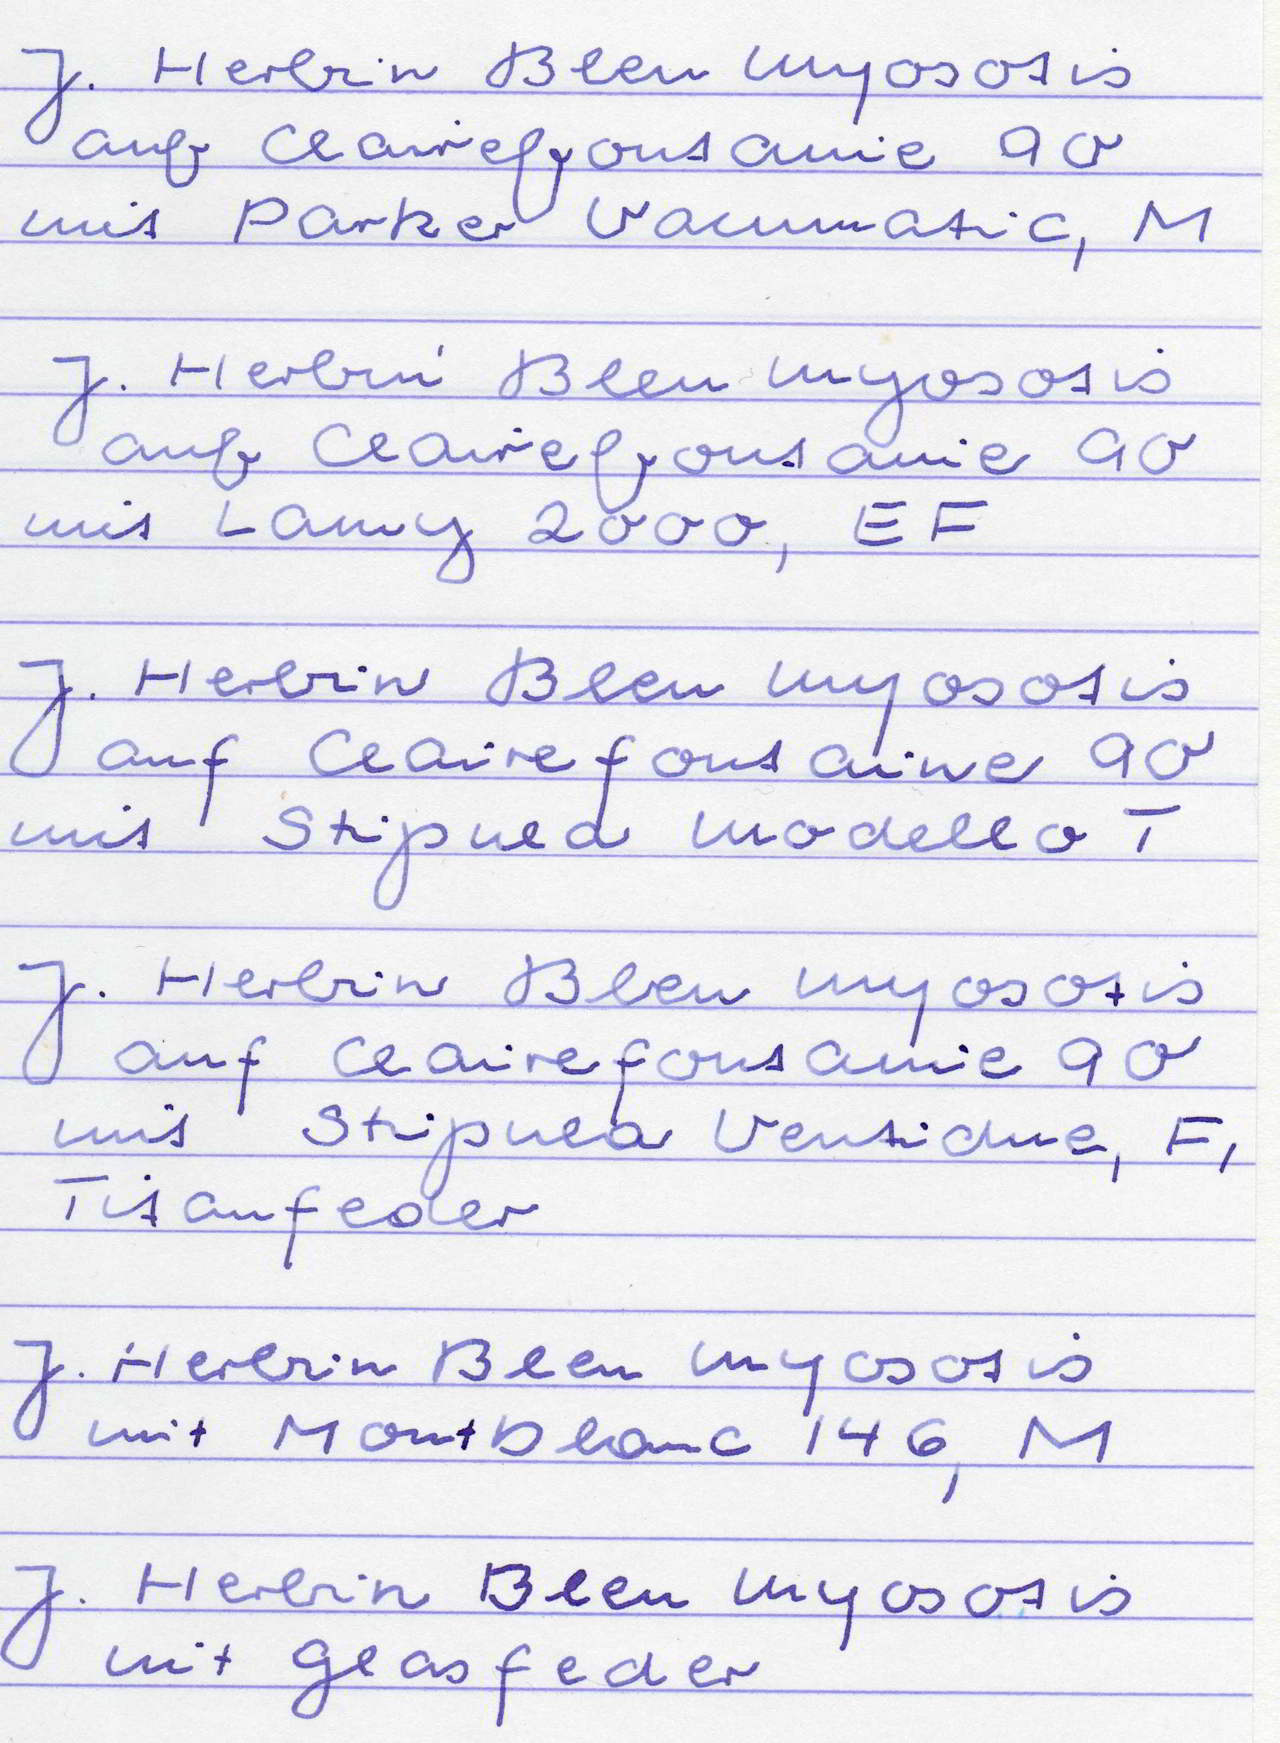 J. Herbin Bleu myosotis
auf Clairefontaine 90
mit Parker Vacumatic, M
J. Herbin Bleu myosotis
auf Clairefontaine 90
mit Lamy 2000, EF
J. Herbin Bleu myosotis
auf Clairefontaine 90
mit Stipula Modello T
J. Herbin Bleu myosotis
auf Clairefontaine 90
mit Stipula Ventidue, F,
Titanfeder
J. Herbin Bleu myosotis
mit Montblanc 146, M
J. Herbin Bleu myosotis
mit Glasfeder